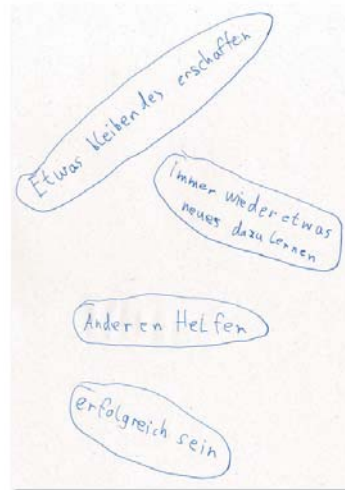 Etwas bleibendes erschaffen
Immer wieder etwas
neues dazu lernen
Anderen Helfen
erfolgreich sein